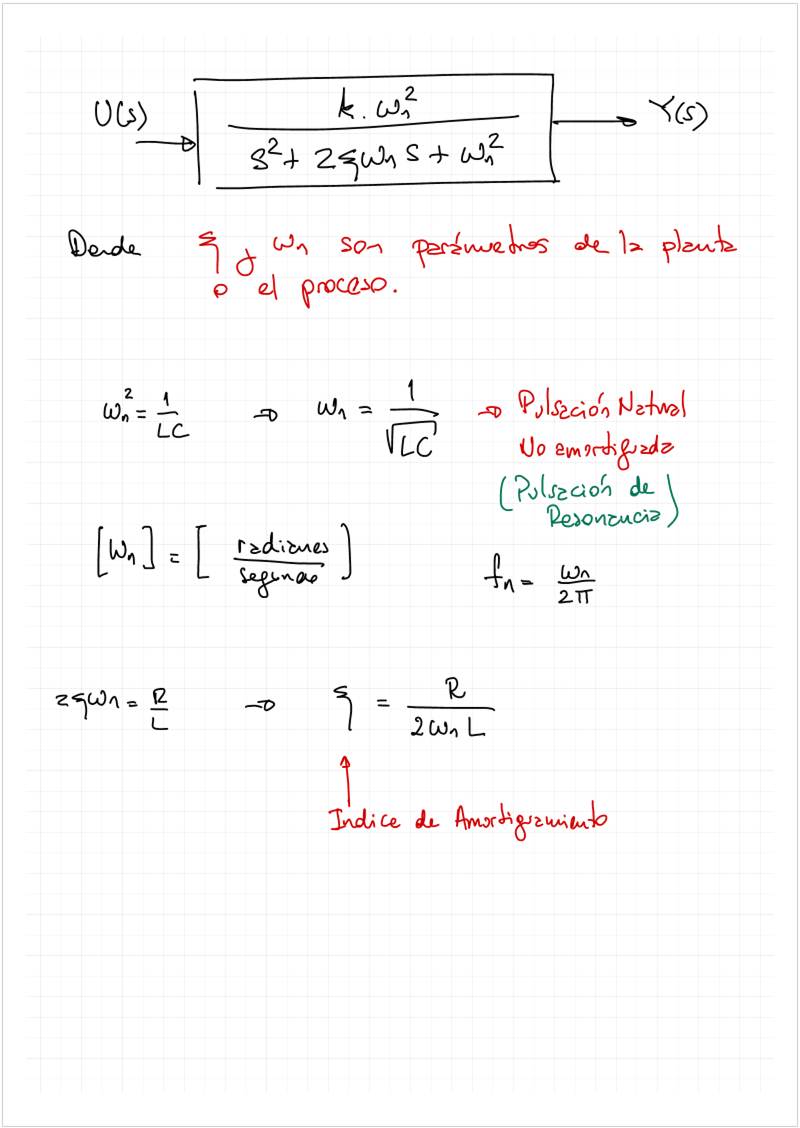 U(s) → k.ωn² / (s² + 2ξωn s + ωn²) → Y(s)
Donde ξ y ωn son parámetros de la planta
o el proceso.
ωn² = 1/LC ⇒ ωn = 1/√LC ⇒ Pulsación Natural
No amortiguada
(Pulsación de
Resonancia)
[Wn] = [radianes/segundo]
fn = ωn/2π
2ξωn = R/L ⇒ ξ = R/(2ωn L)
Indice de Amortiguamiento